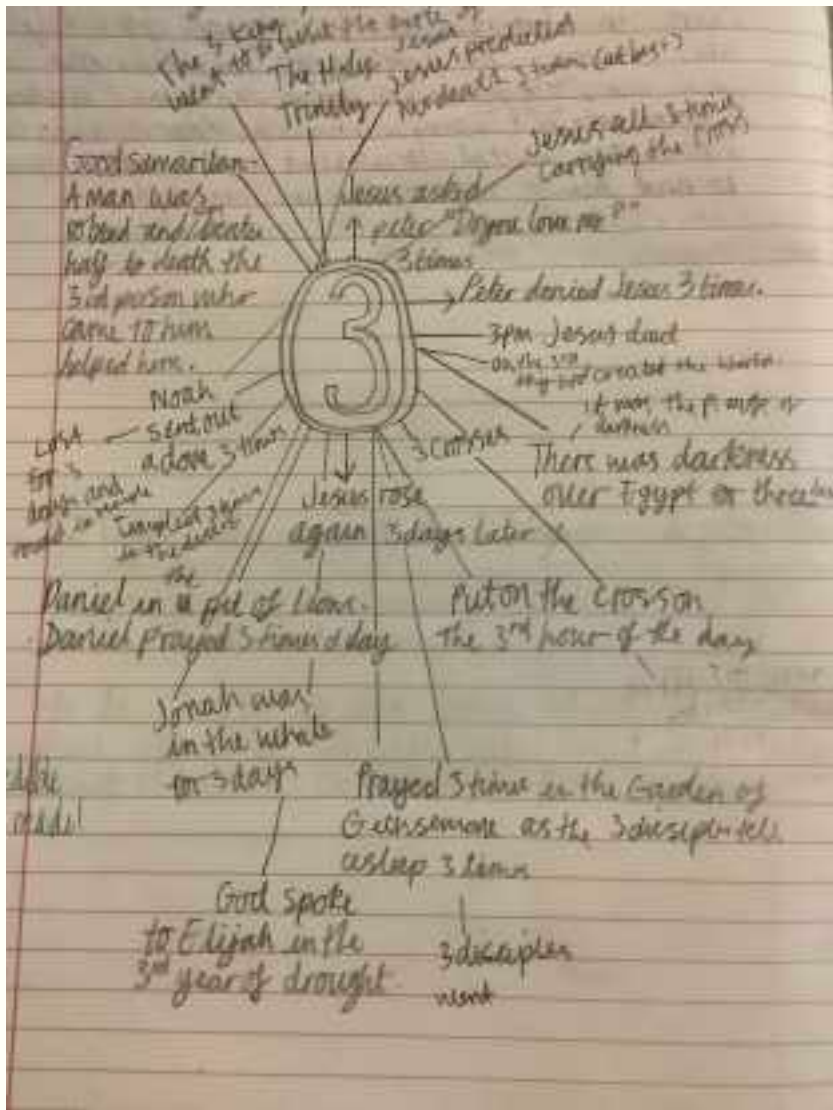 The 3 Kings
went to
The Holy
Trinity
Jesus predicted
3 times
Jesus fell 3 times
carrying the Cross
Good samaritan-
A man was
robbed and beaten
half to death the
3rd person who
came to him
helped him.
Jesus asked
peter "Do you love me?"
3 times
3
Peter denied Jesus 3 times.
3pm Jesus died
on the 3rd
day God created the
it was the
darkness
There was darkness
over Egypt or three
3 crosses
Noah
sent out
a dove 3 times
Lost
for 3
days and
found in
3 times
in the
Jesus rose
again 3 days later
the
Daniel in a pit of Lions.
Daniel prayed 3 times a day
Put on the Cross on
the 3rd hour of the day
Jonah was
in the whale
for 3 days
Prayed 3 times in the Garden of
as the 3
asleep 3 times
God spoke
to Elijah in the
3rd year of drought.
3 disciples
went